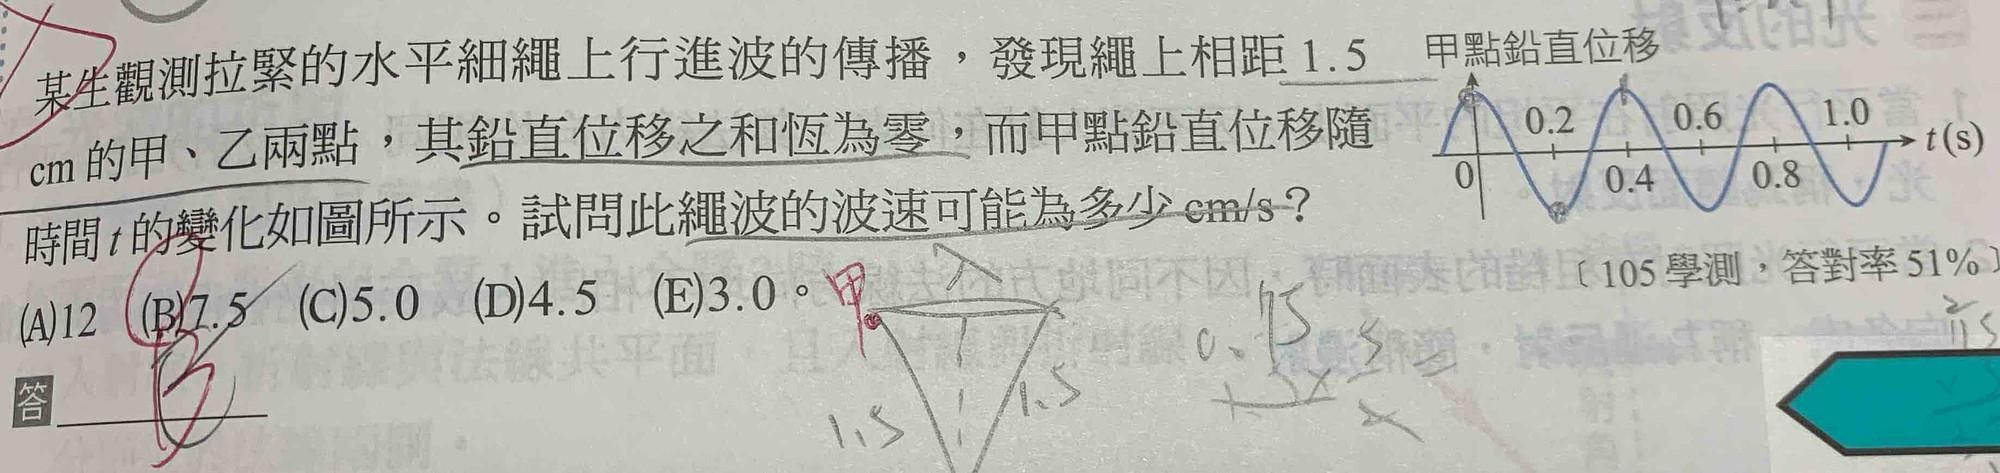 某生觀測拉緊的水平細繩上行進波的傳播，發現繩上相距1.5
cm的甲、乙兩點，其鉛直位移之和恆為零，而甲點鉛直位移隨
時間t的變化如圖所示。試問此繩波的波速可能為多少cm/s？
(A)12 (B)7.5 (C)5.0 (D)4.5 (E)3.0。
答
B
甲點鉛直位移
0.2 0.6 1.0
t(s)
0 0.4 0.8
〔105學測，答對率51%〕
甲
λ
1.5
1.5